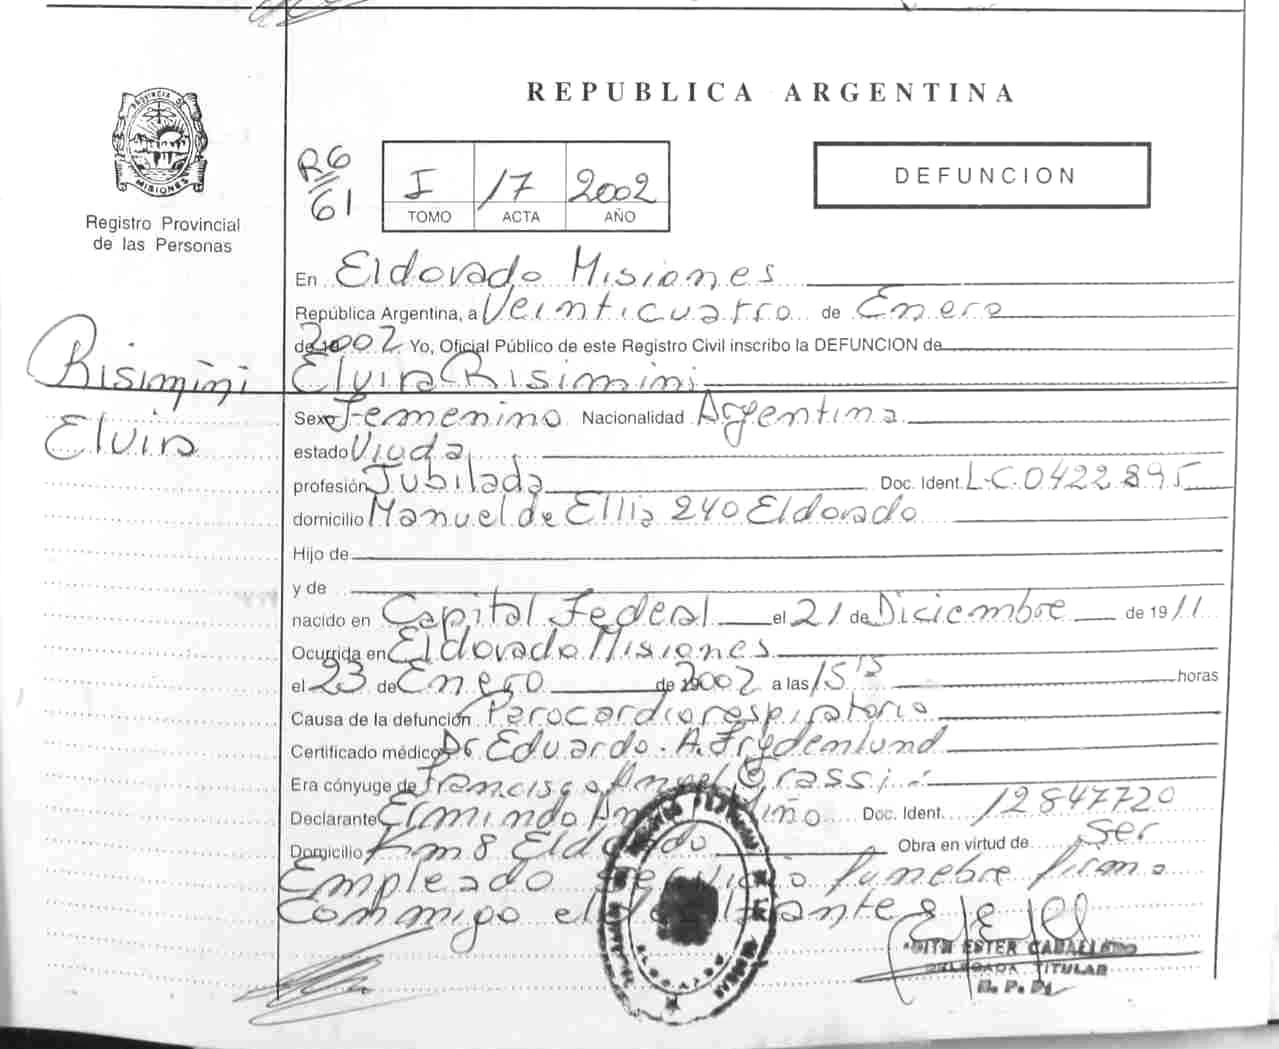 REPUBLICA ARGENTINA
PROVINCIA DE
MISIONES
Registro Provincial
de las Personas
R6
61
I 17 2002
TOMO ACTA AÑO
DEFUNCION
En Eldorado Misiones
República Argentina, a Veinticuatro de Enero
de 2002 Yo, Oficial Público de este Registro Civil inscribo la DEFUNCION de
Elvira Risimini
Risimini
Elvira
Sexo Femenino Nacionalidad Argentina
estado Viuda
profesión Jubilada Doc. Ident. L-C-0422895
domicilio Manuel de Ellia 240 Eldorado
Hijo de
y de
nacido en Capital Federal el 21 de Diciembre de 1911
Ocurrida en Eldorado Misiones
el 23 de Enero de 2002 a las 15 15 horas
Causa de la defunción Parocardiorespiratorio
Certificado médico Dr Eduardo. A. Frydenlund
Era cónyuge de Francisco Angel Grassi
Declarante Ermindo Doc. Ident. 12847720
Domicilio Km 8 Eldorado Obra en virtud de Ser
Empleado Servicio fúnebre firma
Conmigo el declarante
ESTER CABALLERO
DELEGADA TITULAR
R. P. P.